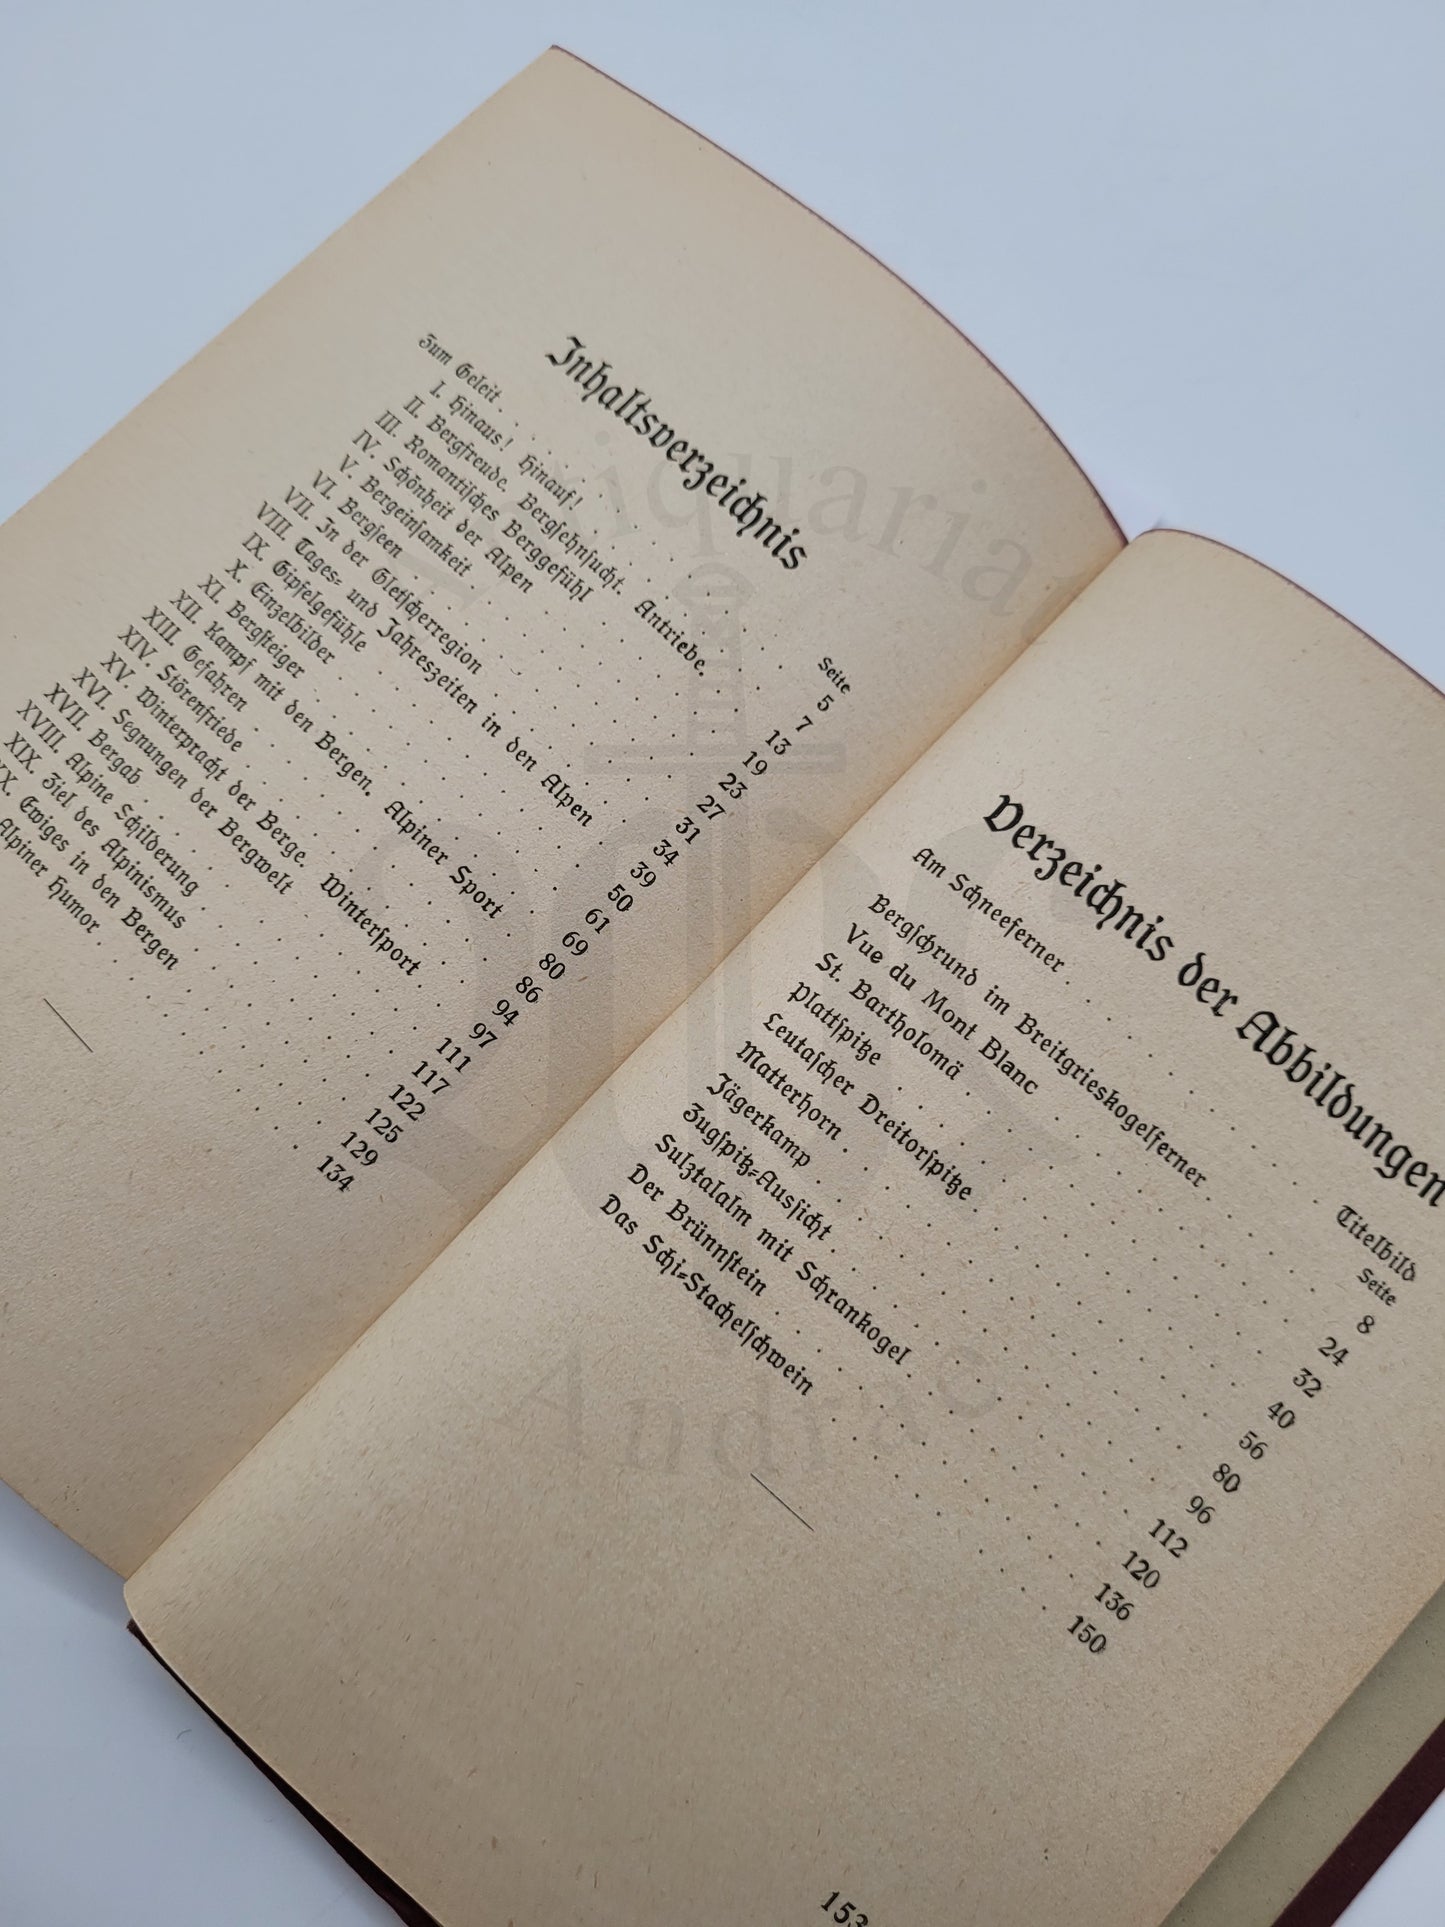 Inhaltsverzeichnis
Seite
Zum Geleit . . . 5
I. Hinaus! Hinauf! . . . 7
II. Bergfreude. Bergsehnsucht. Antriebe. . . . 13
III. Romantisches Berggefühl . . . 19
IV. Schönheit der Alpen . . . 23
V. Bergeinsamkeit . . . 27
VI. Bergseen . . . 31
VII. In der Gletscherregion . . . 34
VIII. Tages- und Jahreszeiten in den Alpen . . . 39
IX. Gipfelgefühle . . . 50
X. Einzelbilder . . . 61
XI. Bergsteiger . . . 69
XII. Kampf mit den Bergen. Alpiner Sport . . . 80
XIII. Gefahren . . . 86
XIV. Störenfriede . . . 94
XV. Winterpracht der Berge. Wintersport . . . 97
XVI. Segnungen der Bergwelt . . . 111
XVII. Bergab . . . 117
XVIII. Alpine Schilderung . . . 122
XIX. Ziel des Alpinismus . . . 125
XX. Ewiges in den Bergen . . . 129
Alpiner Humor . . . 134
Verzeichnis der Abbildungen
Am Schneeferner . . . Titelbild
Seite
Bergschrund im Breitgrieskogelferner . . . 8
Vue du Mont Blanc . . . 24
St. Bartholomä . . . 32
Plattspitze . . . 40
Leutascher Dreitorspitze . . . 56
Matterhorn . . . 80
Jägerkamp . . . 96
Zugspitz-Aussicht . . . 112
Sulztalalm mit Schrankogel . . . 120
Der Brünnstein . . . 136
Das Schi-Stachelschwein . . . 150
153